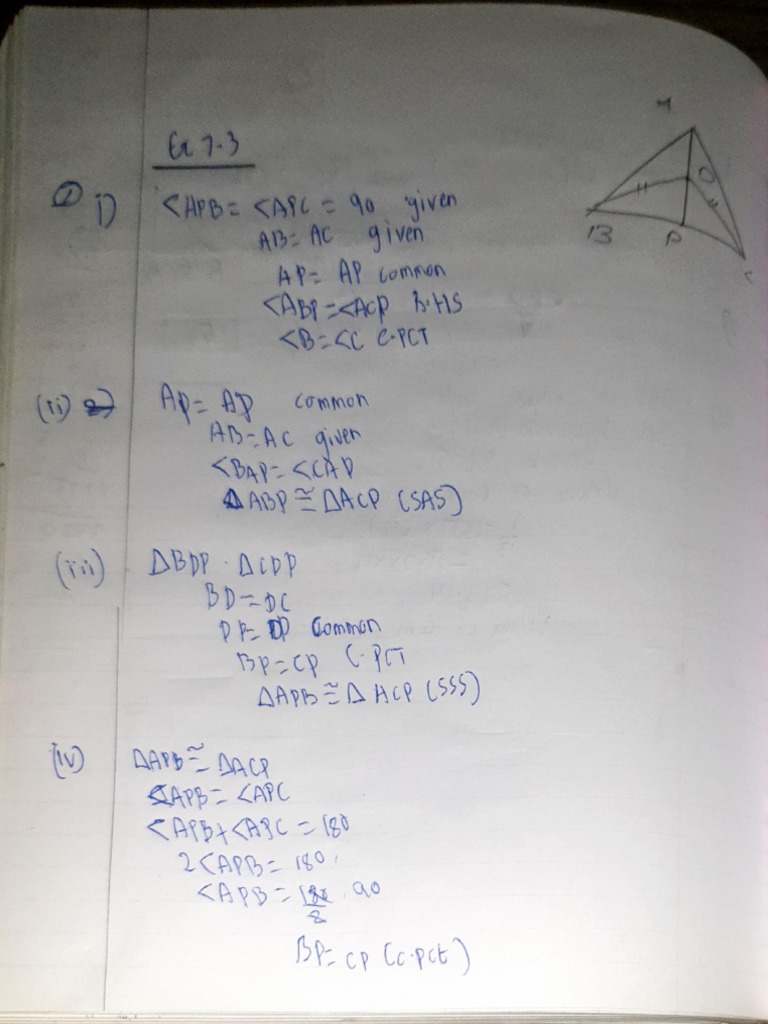 Ex 7.3
① i) <APB = <APC = 90 given
AB = AC given
AP = AP common
<ABP = <ACP R.HS
<B = <C C.PCT
(ii) AP = AP common
AB = AC given
<BAP = <CAP
△ABP ≅ △ACP (SAS)
(iii) △BDP . △CDP
BD = DC
DP = DP Common
BP = CP C.PCT
△APB ≅ △ACP (SSS)
(iv) △APB ≅ △ACP
<APB = <APC
<APB + <APC = 180
2<APB = 180.
<APB = 180/2 . 90
BP = CP (C.PCt)
B
P